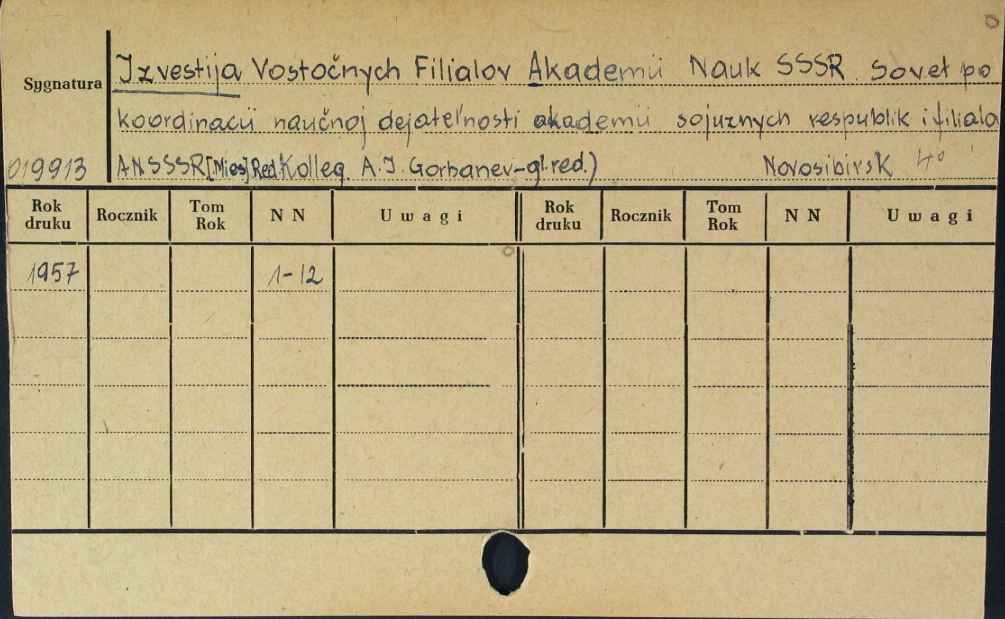 Izvestija Vostočnych Filialov Akademii Nauk SSSR. Sovet po
Sygnatura
koordinacii naučnoj dejatel'nosti akademii sojuznych respublik i filiala
019913 AN SSSR [Mies] Red. Kolleg. A. I. Gorbanev - gl. red.) Novosibirsk 40
Rok druku Rocznik Tom Rok N N Uwagi Rok druku Rocznik Tom Rok N N Uwagi
1957 1-12